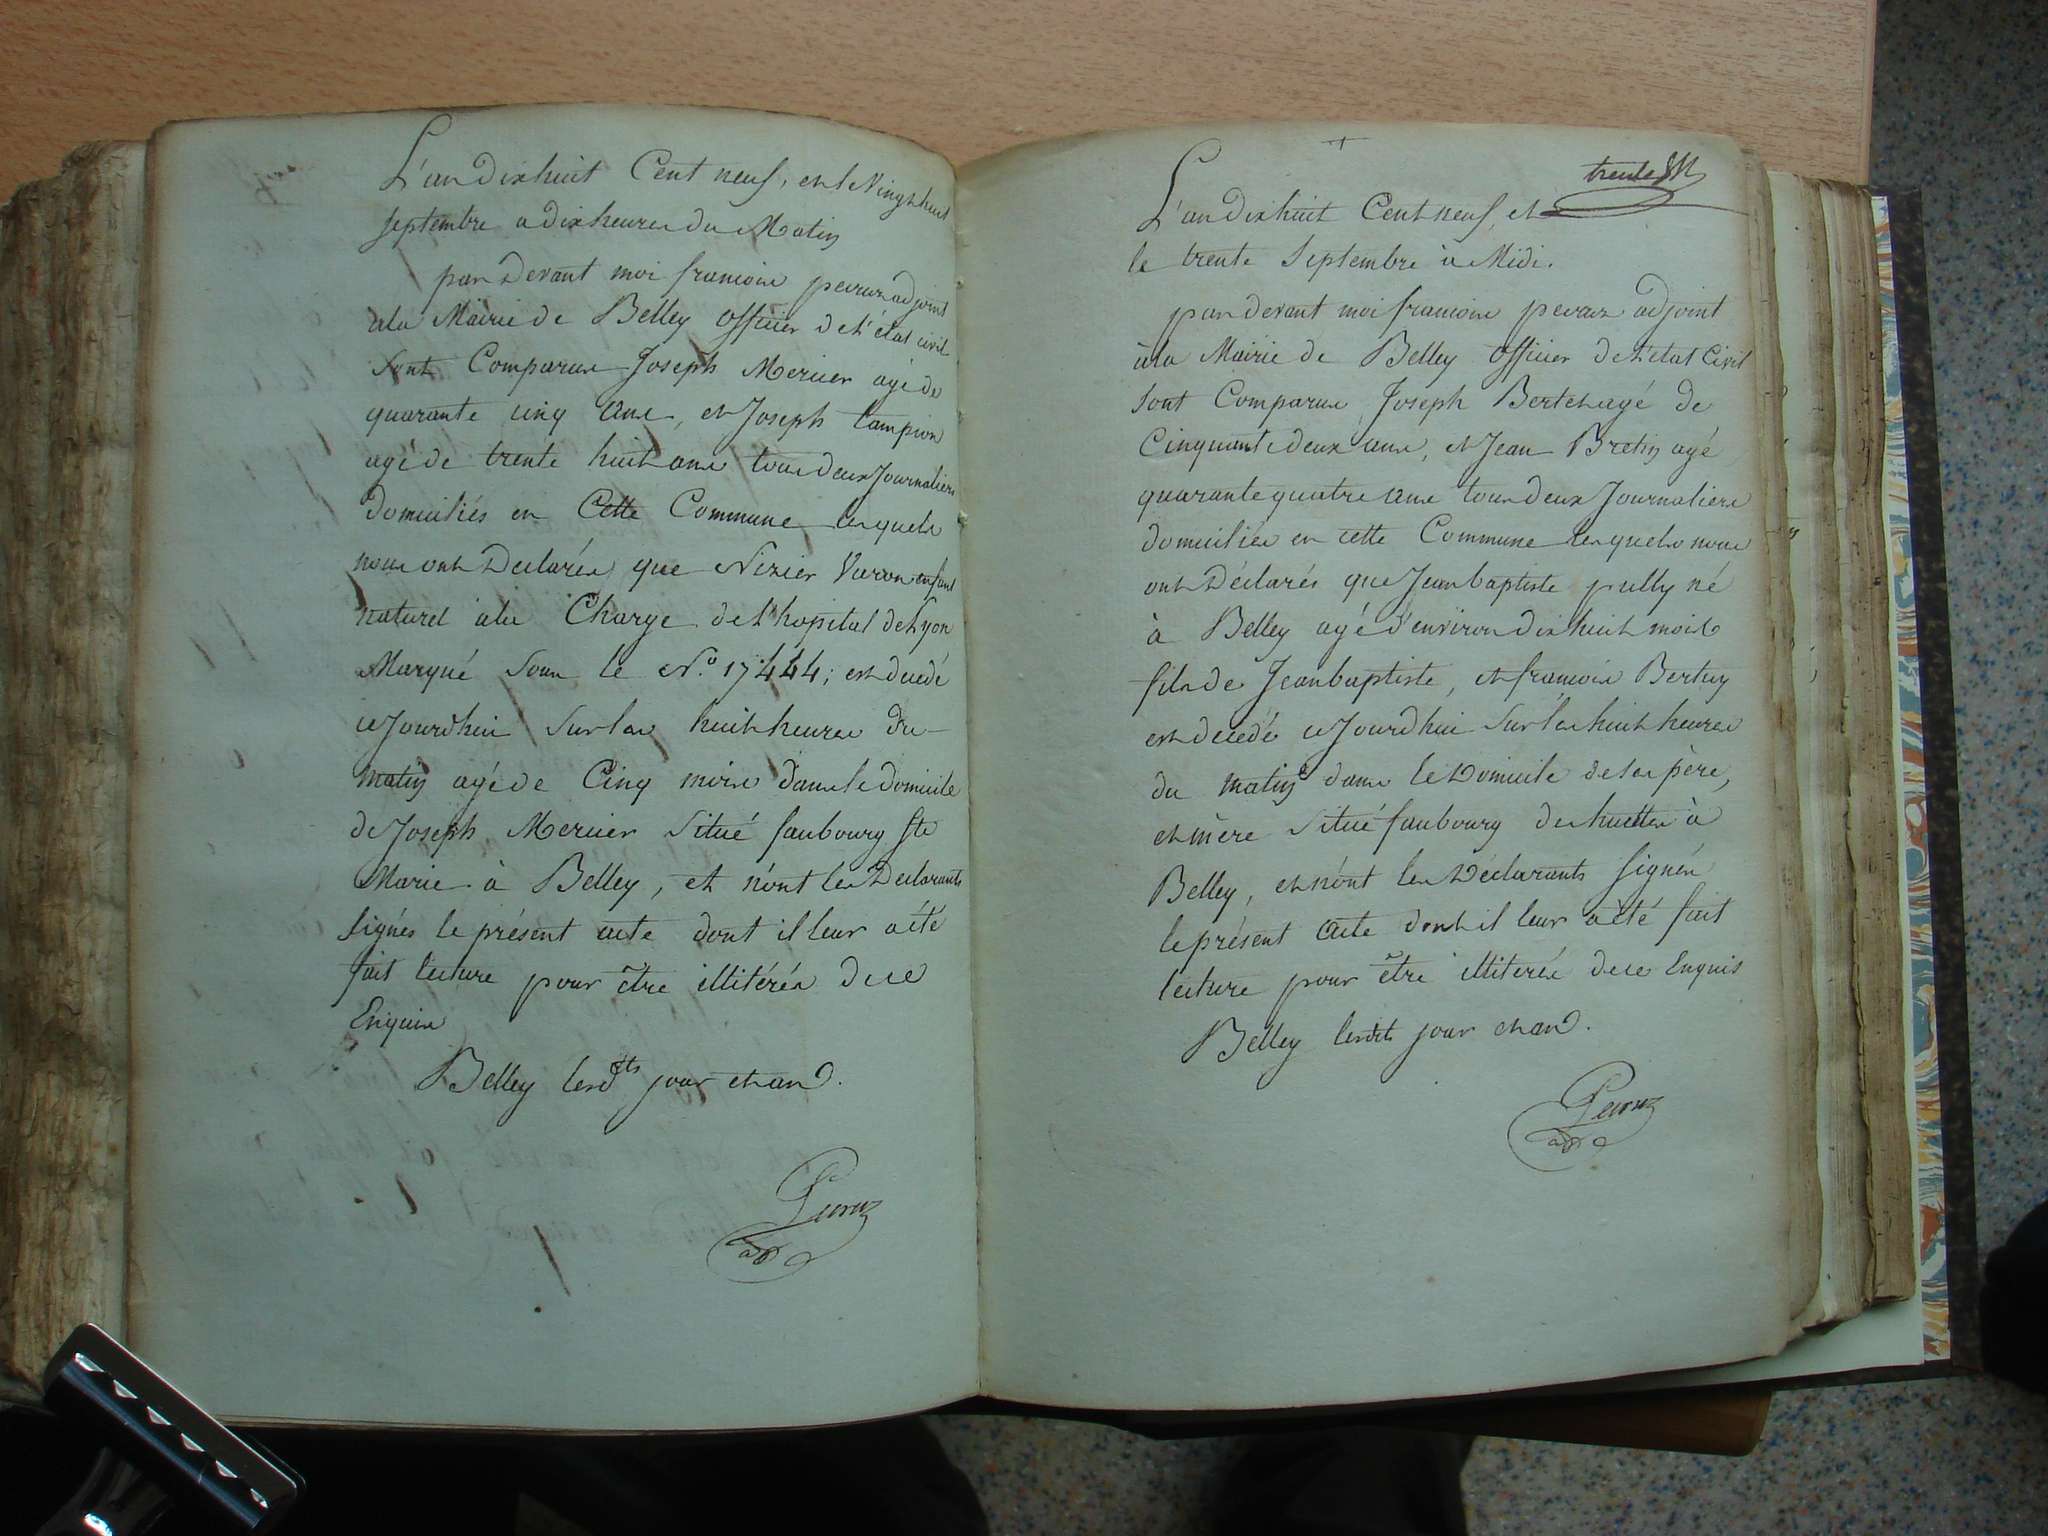 L'an dix huit Cent neuf, et le Vingt huit
septembre a dix heures du Matin
par devant moi francois pecruz adjoint
a la Mairie de Belley officier de l'état civil
sont Comparus Joseph Mercier agé de
quarante cinq ans, et Joseph Campion
agé de trente huit ans tous deux Journaliers
domiciliés en Cette Commune lesquels
nous ont Déclarés que Nizier Varon enfant
naturel à la Charge de l'hopital de Lyon
Marqué sous le N.o 17444; est decedé
ce Jourdhui sur les huit heures du
matin agé de Cinq mois dans le domicile
de Joseph Mercier Situé faubourg Ste
Marie à Belley, et n'ont les Declarants
signés le présent acte dont il leur a été
fait lecture pour être illitérés de ce
Enquis
Belley lesdts jour et an.
Pecruz
adj
trente
L'an dix huit Cent neuf, et
le trente Septembre à Midi.
par devant moi francois pecruz adjoint
à la Mairie de Belley officier de l'état Civil
sont Comparus Joseph Bertet agé de
Cinquante deux ans, et Jean Bretin agé
quarante quatre ans tous deux Journaliers
domiciliés en cette Commune lesquels nous
ont Déclarés que Jean baptiste pully né
à Belley agé d'environ dix huit mois
fils de Jean baptiste, et francoise
est decedé ce Jourdhui sur les huit heures
du matin dans le Domicile de ses père,
et mère situé faubourg des huttes à
Belley, et n'ont les Déclarants signés
le présent acte dont il leur a été fait
lecture pour être illiterés de ce Enquis
Belley lesdits jour et an.
Pecruz
adj